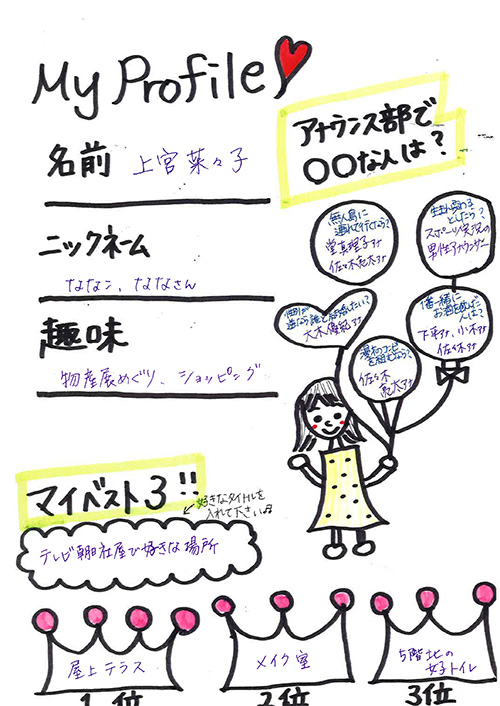 My Profile
アナウンス部で
〇〇な人は?
名前 上宮菜々子
ニックネーム
ななこ、ななさん
趣味
物産展めぐり、ショッピング
無人島に
連れて行くなら?
堂真理子アナ
佐々木亮太アナ
スポーツ実況の
男性アナウンサー
性別が
逆なら誰と結婚したい?
大木優紀アナ
1番一緒に
お酒を飲んだ
人は?
下平アナ、小木アナ
佐々木アナ
漫才のコンビ
を組むなら?
佐々木
亮太アナ
マイベスト3!!
好きなタイトルを
入れて下さい♫
テレビ朝日社屋で好きな場所
屋上テラス
メイク室
5階北の
女子トイレ
1位
2位
3位